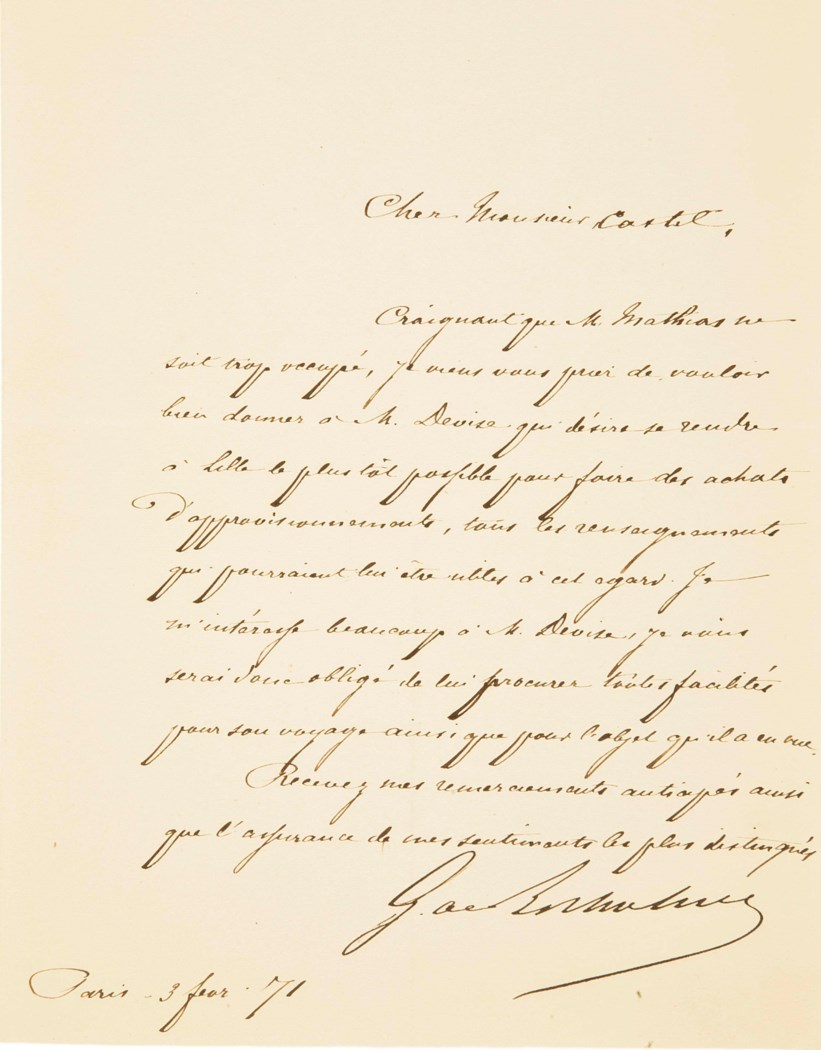 Cher Monsieur Castel,
Craignant que M. Mathias ne
soit trop occupé, je viens vous prier de vouloir
bien donner à M. Devise qui désire se rendre
à Lille le plus tôt possible pour faire des achats
d'approvisionnements, tous les renseignements
qui pourraient lui être utiles à cet égard. Je
m'intéresse beaucoup à M. Devise, je vous
serai donc obligé de lui procurer toutes facilités
pour son voyage ainsi que pour l'objet qu'il a en vue.
Recevez mes remerciements anticipés ainsi
que l'assurance de mes sentiments les plus distingués
G. de
Paris - 3 fevr. 71